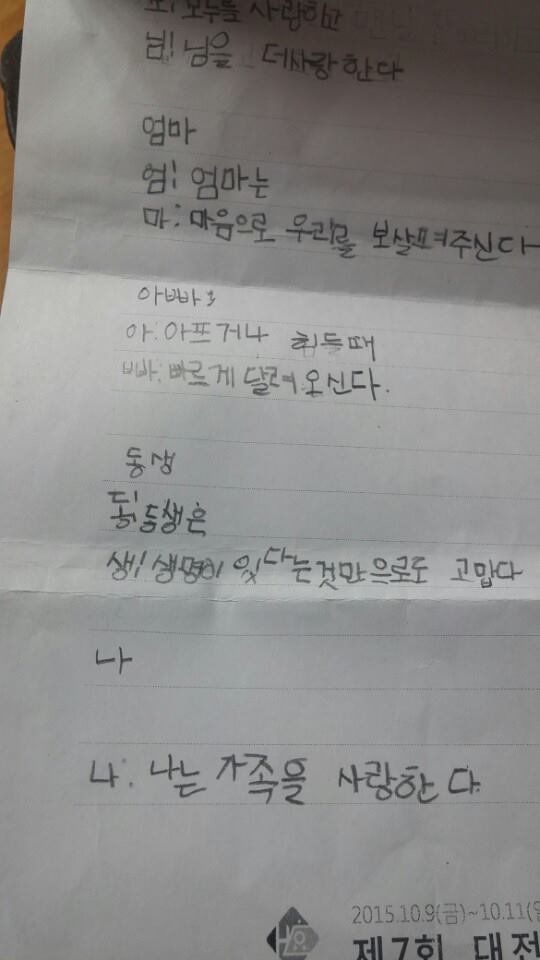 모두를 사랑하고
비! 님을 더사랑한다
엄마
엄! 엄마는
마: 마음으로 우리를 보살펴주신다
아빠:
아: 아프거나 힘들때
빠: 빠르게 달려오신다.
동생
동! 동생은
생! 생명이 있다는것만으로도 고맙다
나
나: 나는 가족을 사랑한다
2015.10.9(금)~10.11(일
제7회 대전